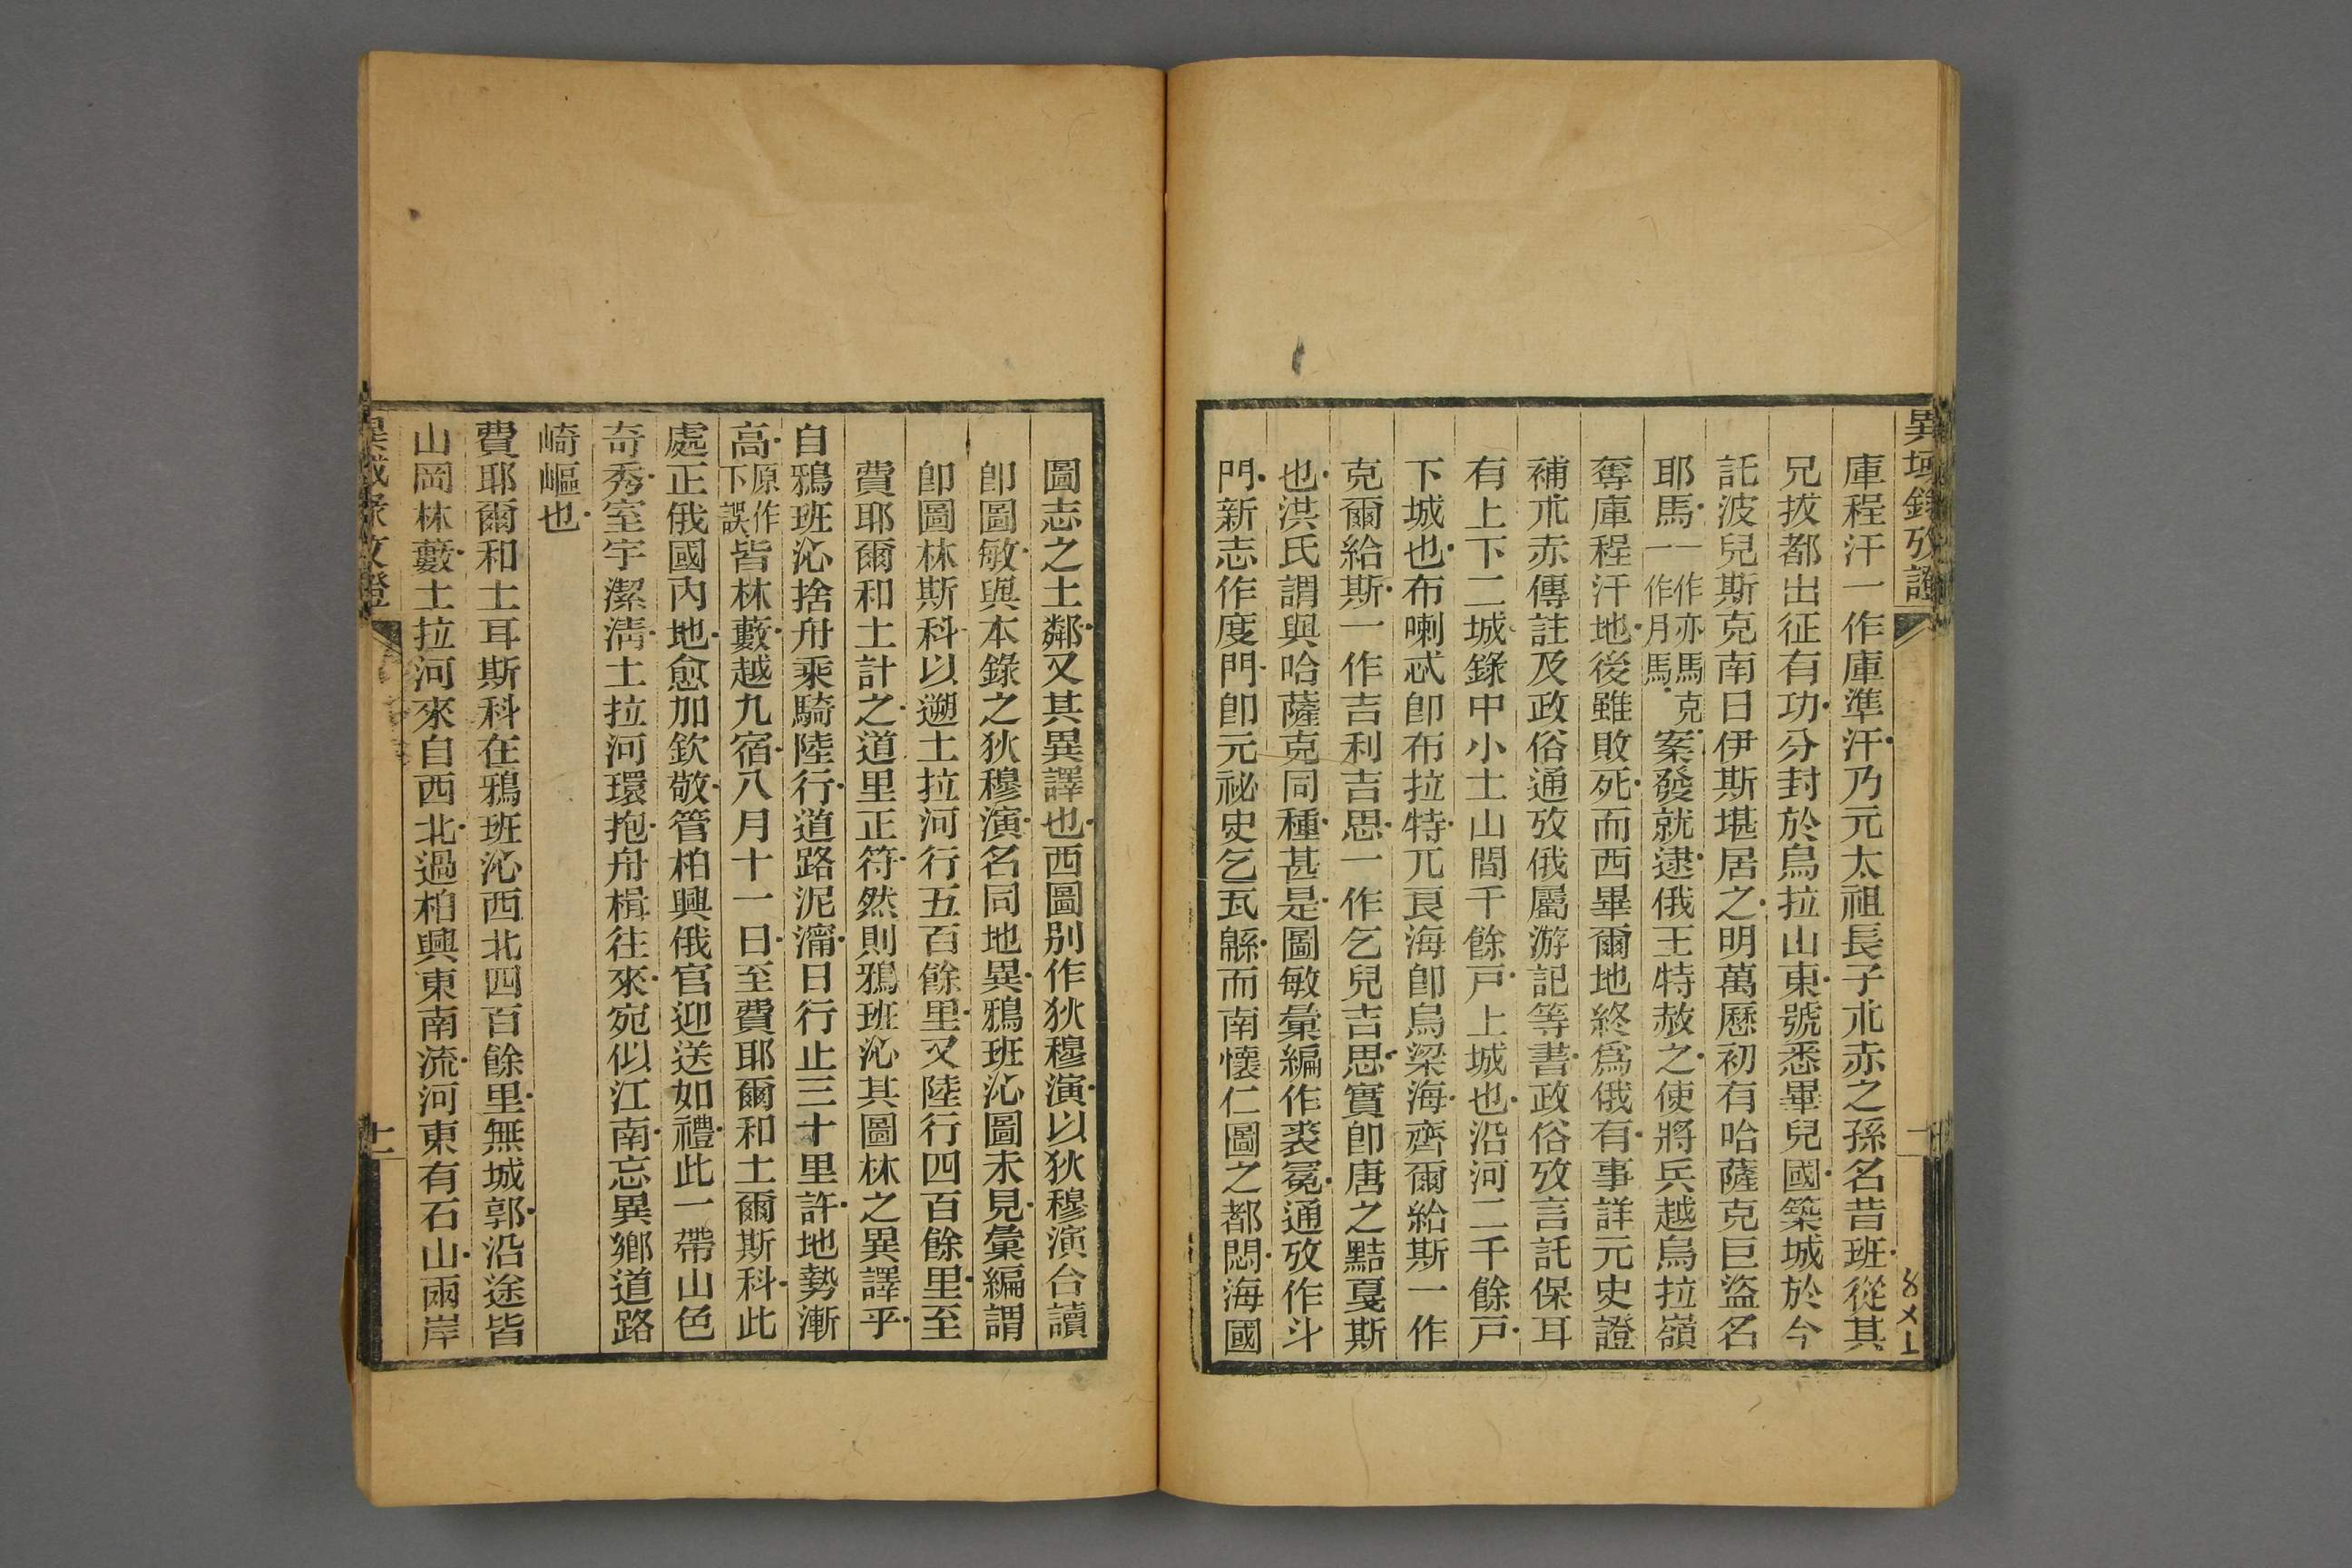 異域錄攷證
庫程汗一作庫準汗乃元太祖長子朮赤之孫名昔班從其
兄拔都出征有功分封於烏拉山東號悉畢兒國築城於今
託波兒斯克南日伊斯堪居之明萬曆初有哈薩克巨盜名
耶馬一作亦馬克一作月馬案發就逮俄王特赦之使將兵越烏拉嶺
奪庫程汗地後雖敗死而西畢爾地終爲俄有事詳元史證
補朮赤傳註及政俗通攷俄屬游記等書政俗攷言託保耳
有上下二城錄中小土山間千餘戸上城也沿河二千餘戸
下城也布喇忒卽布拉特兀良海卽烏梁海齊爾給斯一作
克爾給斯一作吉利吉思一作乞兒吉思實卽唐之黠戛斯
也洪氏謂與哈薩克同種甚是圖敏彙編作裘冕通攷作斗
門新志作度門卽元祕史乞瓦緜而南懷仁圖之都悶海國
圖志之土鄰又其異譯也西圖別作狄穆演以狄穆演合讀
卽圖敏與本錄之狄穆演名同地異鴉班沁圖未見彙編謂
卽圖林斯科以遡土拉河行五百餘里又陸行四百餘里至
費耶爾和土計之道里正符然則鴉班沁其圖林之異譯乎
自鴉班沁捨舟乘騎陸行道路泥濘日行止三十里許地勢漸
高原作下誤皆林藪越九宿八月十一日至費耶爾和土爾斯科此
處正俄國內地愈加欽敬管柏興俄官迎送如禮此一帶山色
奇秀室宇潔淸土拉河環抱舟楫往來宛似江南忘異鄉道路
崎嶇也
費耶爾和土耳斯科在鴉班沁西北四百餘里無城郭沿途皆
山岡林藪土拉河來自西北過柏興東南流河東有石山兩岸
異域錄攷證
十一